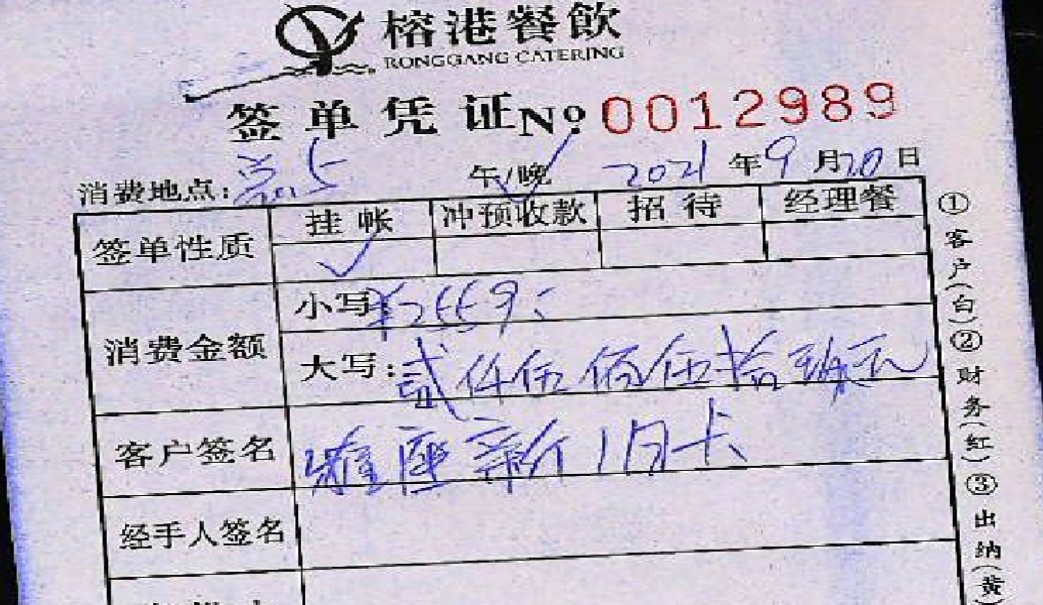 榕港餐飲
RONGGANG CATERING
签单凭证 № 0012989
消费地点: 午/晚 2021年9月20日
签单性质 挂帐 冲预收款 招待 经理餐
✓
消费金额 小写: ¥2559
大写: 贰仟伍佰伍拾玖元
客户签名 雅座新旧卡
经手人签名
①客户(白)②财务(红)③出纳(黄)